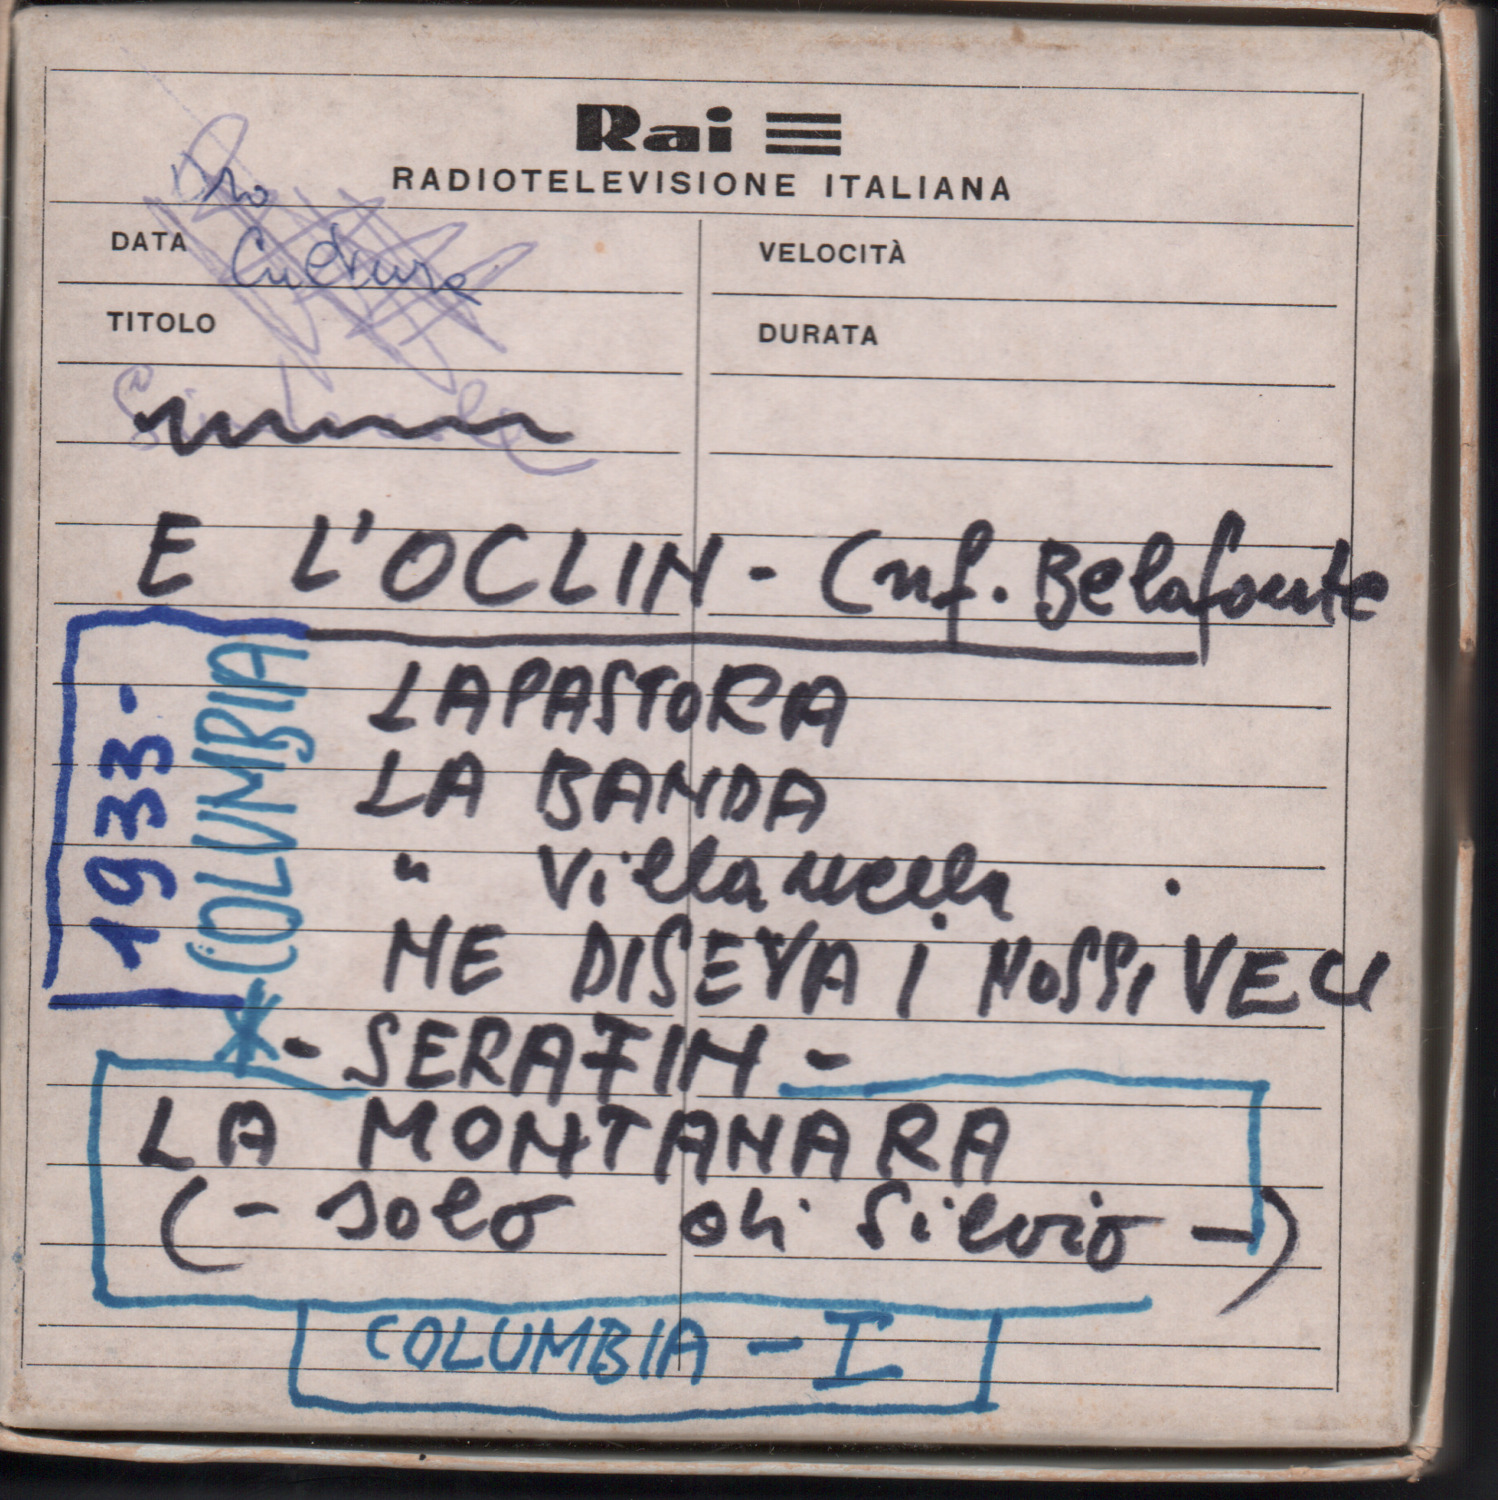 Rai
RADIOTELEVISIONE ITALIANA
Pro
DATA
VELOCITÀ
TITOLO
DURATA
E L'OCLIN - Cnf. Belafonte
1933-
COLUMBIA
LA PASTORA
LA BANDA
" Villanella
NE DISEVA I NOSSI VECI
- SERAFIN -
LA MONTANARA
(- solo di Silvio -)
COLUMBIA - I